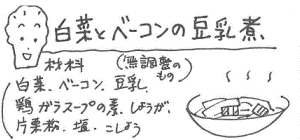 白菜とベーコンの豆乳煮
材料
(無調整のもの)
(白菜、ベーコン、豆乳、
鶏ガラスープの素、しょうが、
片栗粉、塩、こしょう